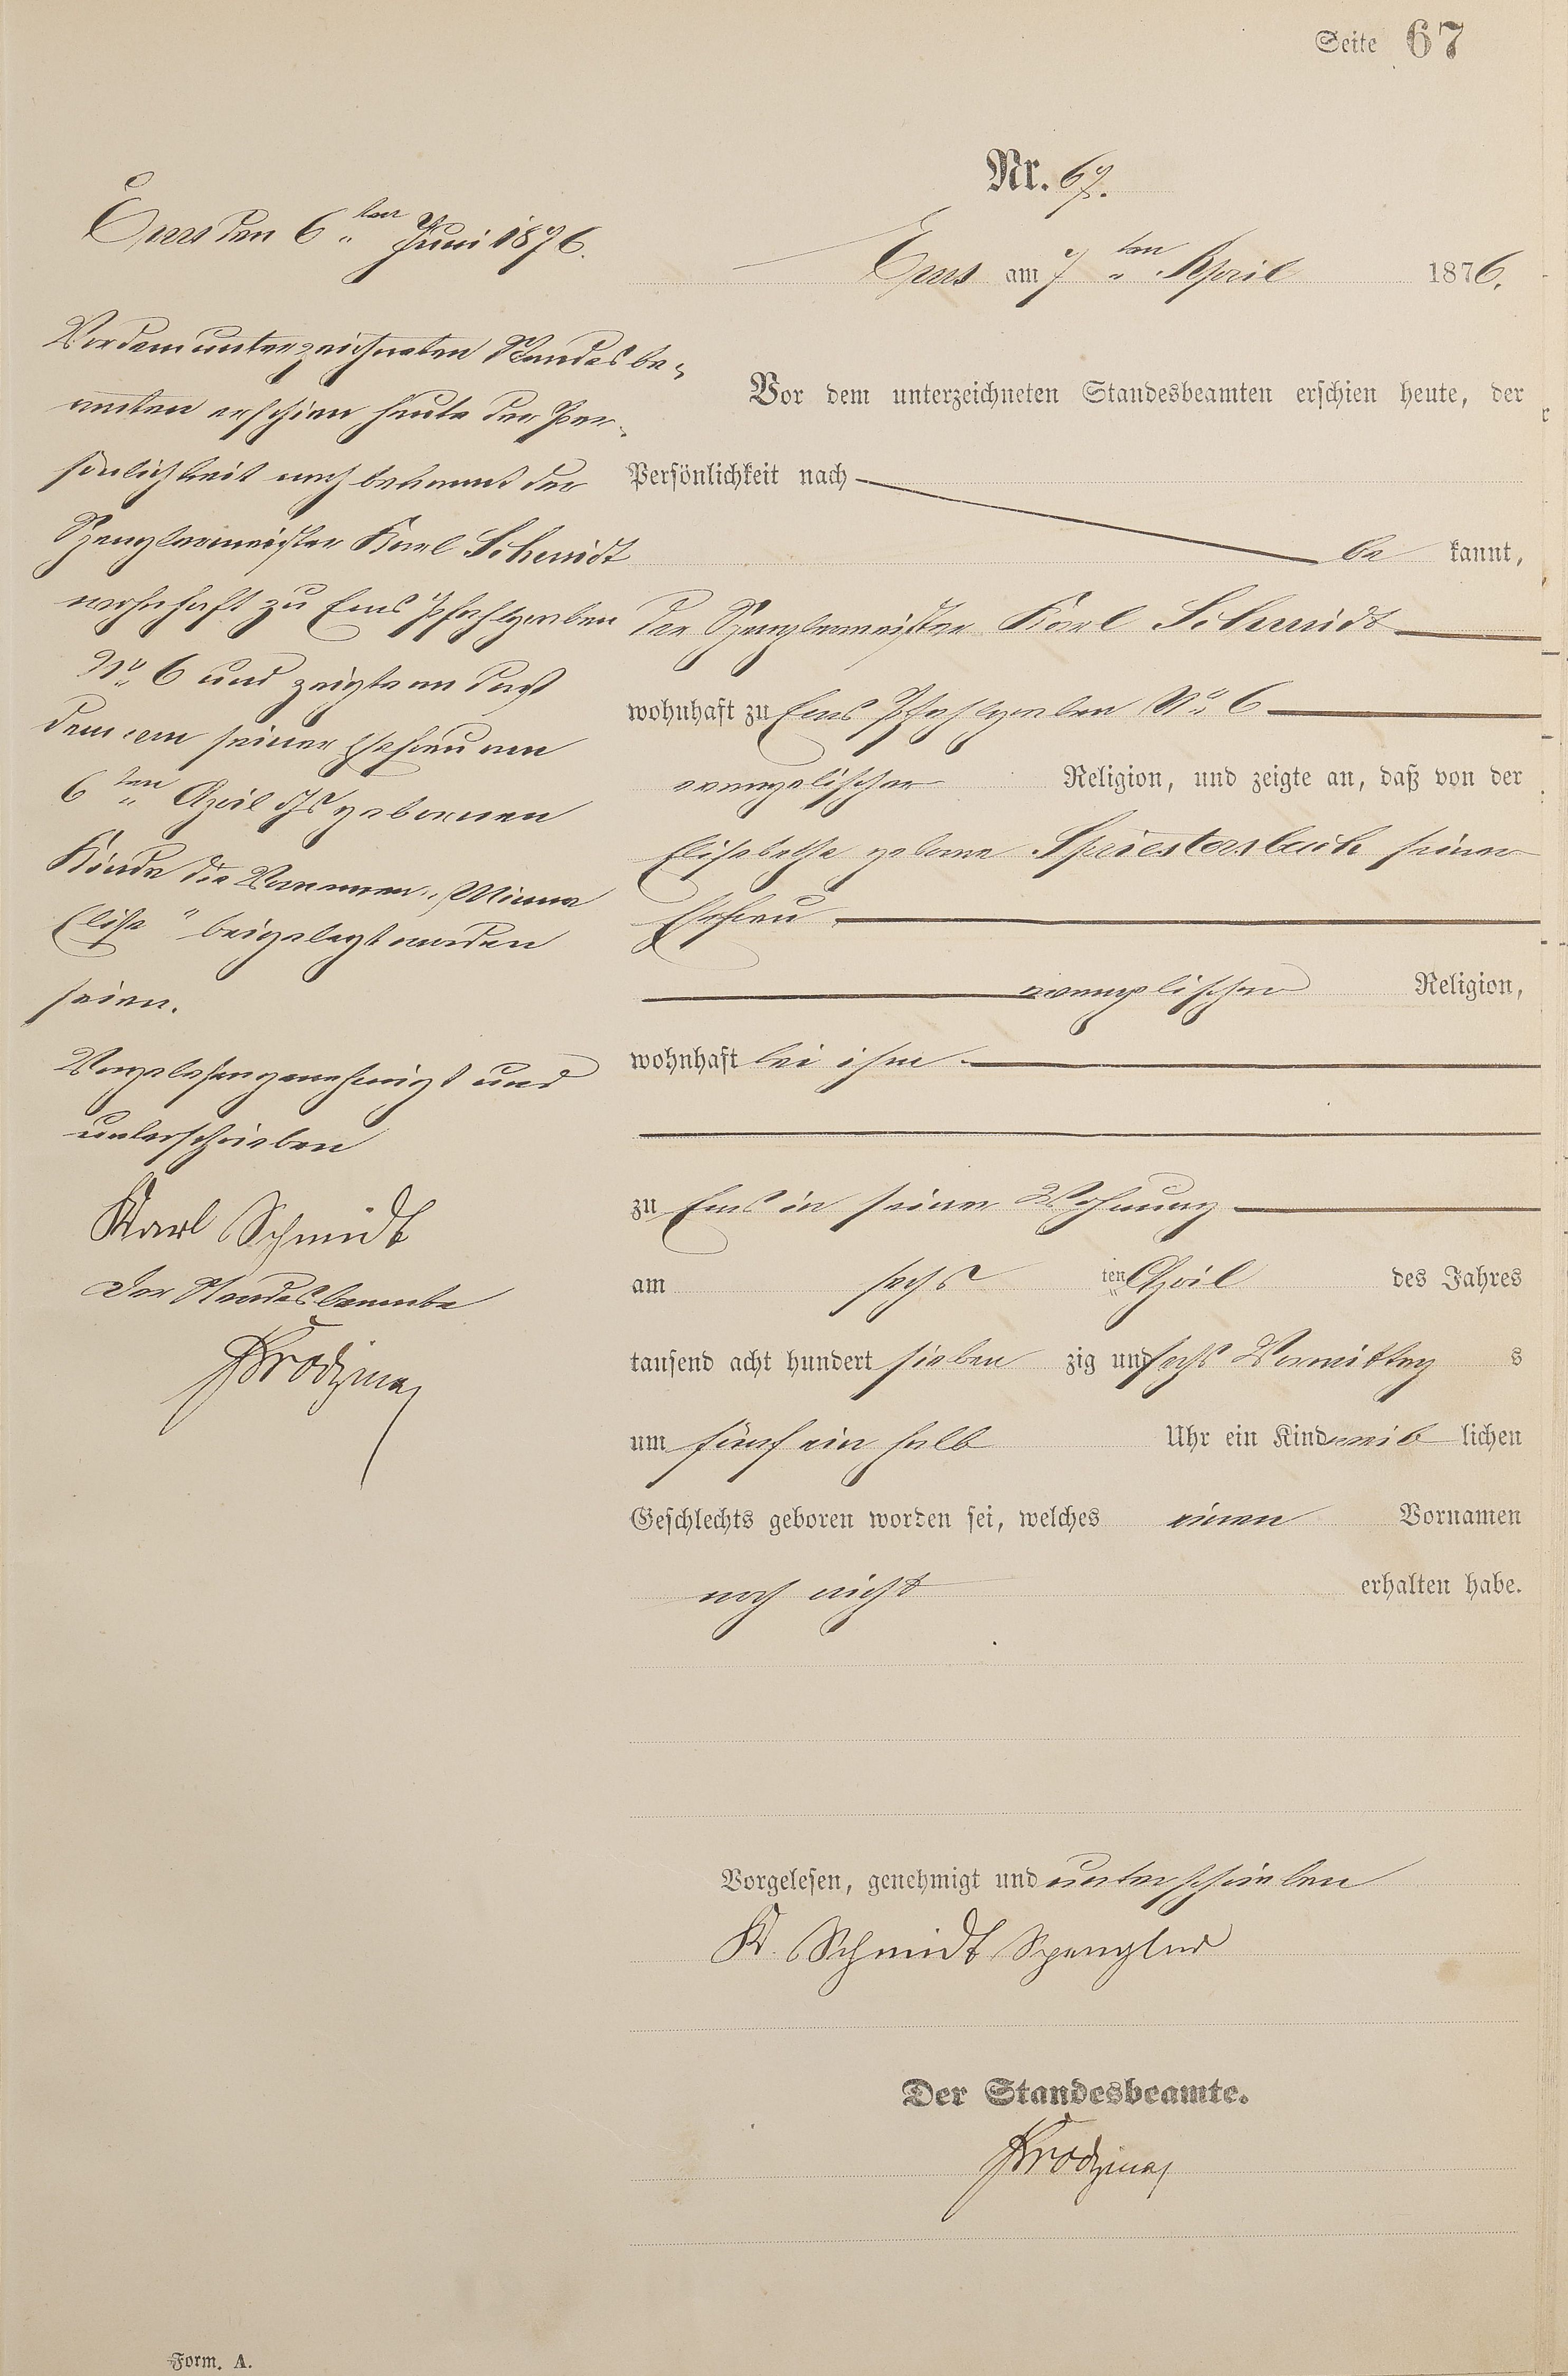 Seite 67
Nr. 67.
Ems am 7ten April 1876.
Vor dem unterzeichneten Standesbeamten erschien heute, der
Persönlichkeit nach
be kannt,
der Spenglermeister Karl Schmidt
wohnhaft zu Ems Pfahlgraben No 6
evangelischer Religion, und zeigte an, daß von der
Elisabethe geborne Spriestersbach seiner
Ehefrau
evangelischer Religion,
wohnhaft bei ihm
zu Ems in seiner Wohnung
am sechs ten April des Jahres
tausend acht hundert sieben zig und sechs Vormittag s
um fünf ein halb Uhr ein Kind weib lichen
Geschlechts geboren worden sei, welches einen Vornamen
noch nicht erhalten habe.
Vorgelesen, genehmigt und unterschrieben
K. Schmidt Spengler
Der Standesbeamte.
Ems den 6ten Juni 1876.
Vor dem unterzeichneten Standesbe-
amten erschien heute der Per-
sönlichkeit nach bekannt der
Spenglermeister Karl Schmidt
wohnhaft zu Ems Pfahlgraben
No 6 und zeigte an daß
dem von seiner Ehefrau am
6ten April d Js gebornen
Kinde die Vornamen „Minna
Elise" beigelegt worden
seien.
Vorgelesen genehmigt und
unterschrieben
Karl Schmidt
Der Standesbeamte
Form. A.